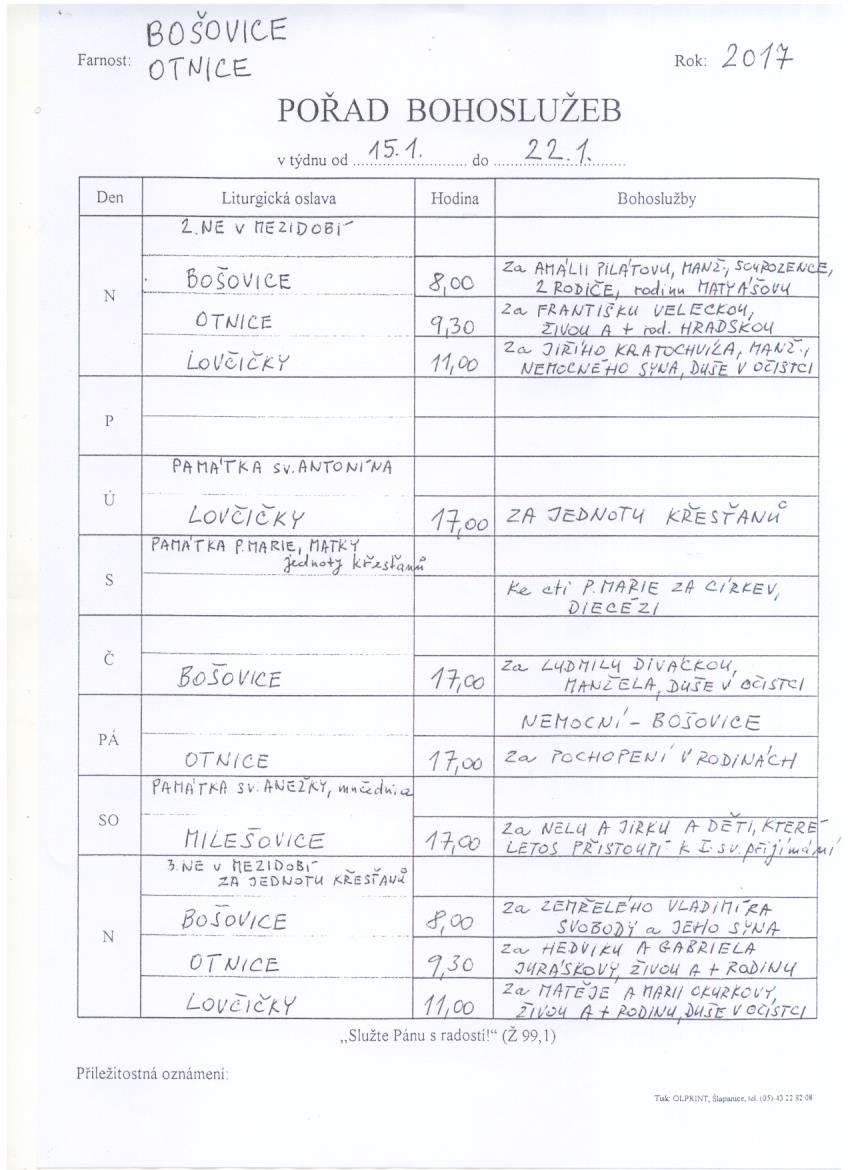 BOŠOVICE
Farnost: OTNICE Rok: 2017
POŘAD BOHOSLUŽEB
v týdnu od 15.1. do 22.1.
Den Liturgická oslava Hodina Bohoslužby
N 2. NE V MEZIDOBÍ
BOŠOVICE 8,00 Za AMÁLII PILÁTOVU, MANŽ., SOUROZENCE,
2 RODIČE, rodinu MATYÁŠOVU
OTNICE 9,30 Za FRANTIŠKU VELECKOU,
ŽIVOU A + rod. HRADSKOU
LOVČIČKY 11,00 Za JIŘÍHO KRATOCHVÍLA, MANŽ.,
NEMOCNÉHO SYNA, DUŠE V OČISTCI
P
Ú PAMÁTKA sv. ANTONÍNA
LOVČIČKY 17,00 ZA JEDNOTU KŘESŤANŮ
S PAMÁTKA P. MARIE, MATKY
jednoty křesťanů
Ke cti P. MARIE ZA CÍRKEV,
DIECÉZI
Č
BOŠOVICE 17,00 Za LUDMILU DIVÁCKOU,
MANŽELA, DUŠE V OČISTCI
PÁ NEMOCNÍ - BOŠOVICE
OTNICE 17,00 Za POCHOPENÍ V RODINÁCH
SO PAMÁTKA sv. ANEŽKY, mučednice
MILEŠOVICE 17,00 Za NELU A JIRKU A DĚTI, KTERÉ
LETOS PŘISTOUPÍ K I. sv. přijímání
N 3. NE V MEZIDOBÍ
ZA JEDNOTU KŘESŤANŮ
BOŠOVICE 8,00 Za ZEMŘELÉHO VLADIMÍRA
SVOBODY a JEHO SYNA
OTNICE 9,30 Za HEDVIKU A GABRIELA
JURÁSKOVY, ŽIVOU A + RODINU
LOVČIČKY 11,00 Za MATĚJE A MARII OKURKOVY,
ŽIVOU A + RODINU, DUŠE V OČISTCI
„Služte Pánu s radostí!“ (Ž 99,1)
Příležitostná oznámení:
Tisk: OLPRINT, Šlapanice, tel. (05) 43 22 82 08